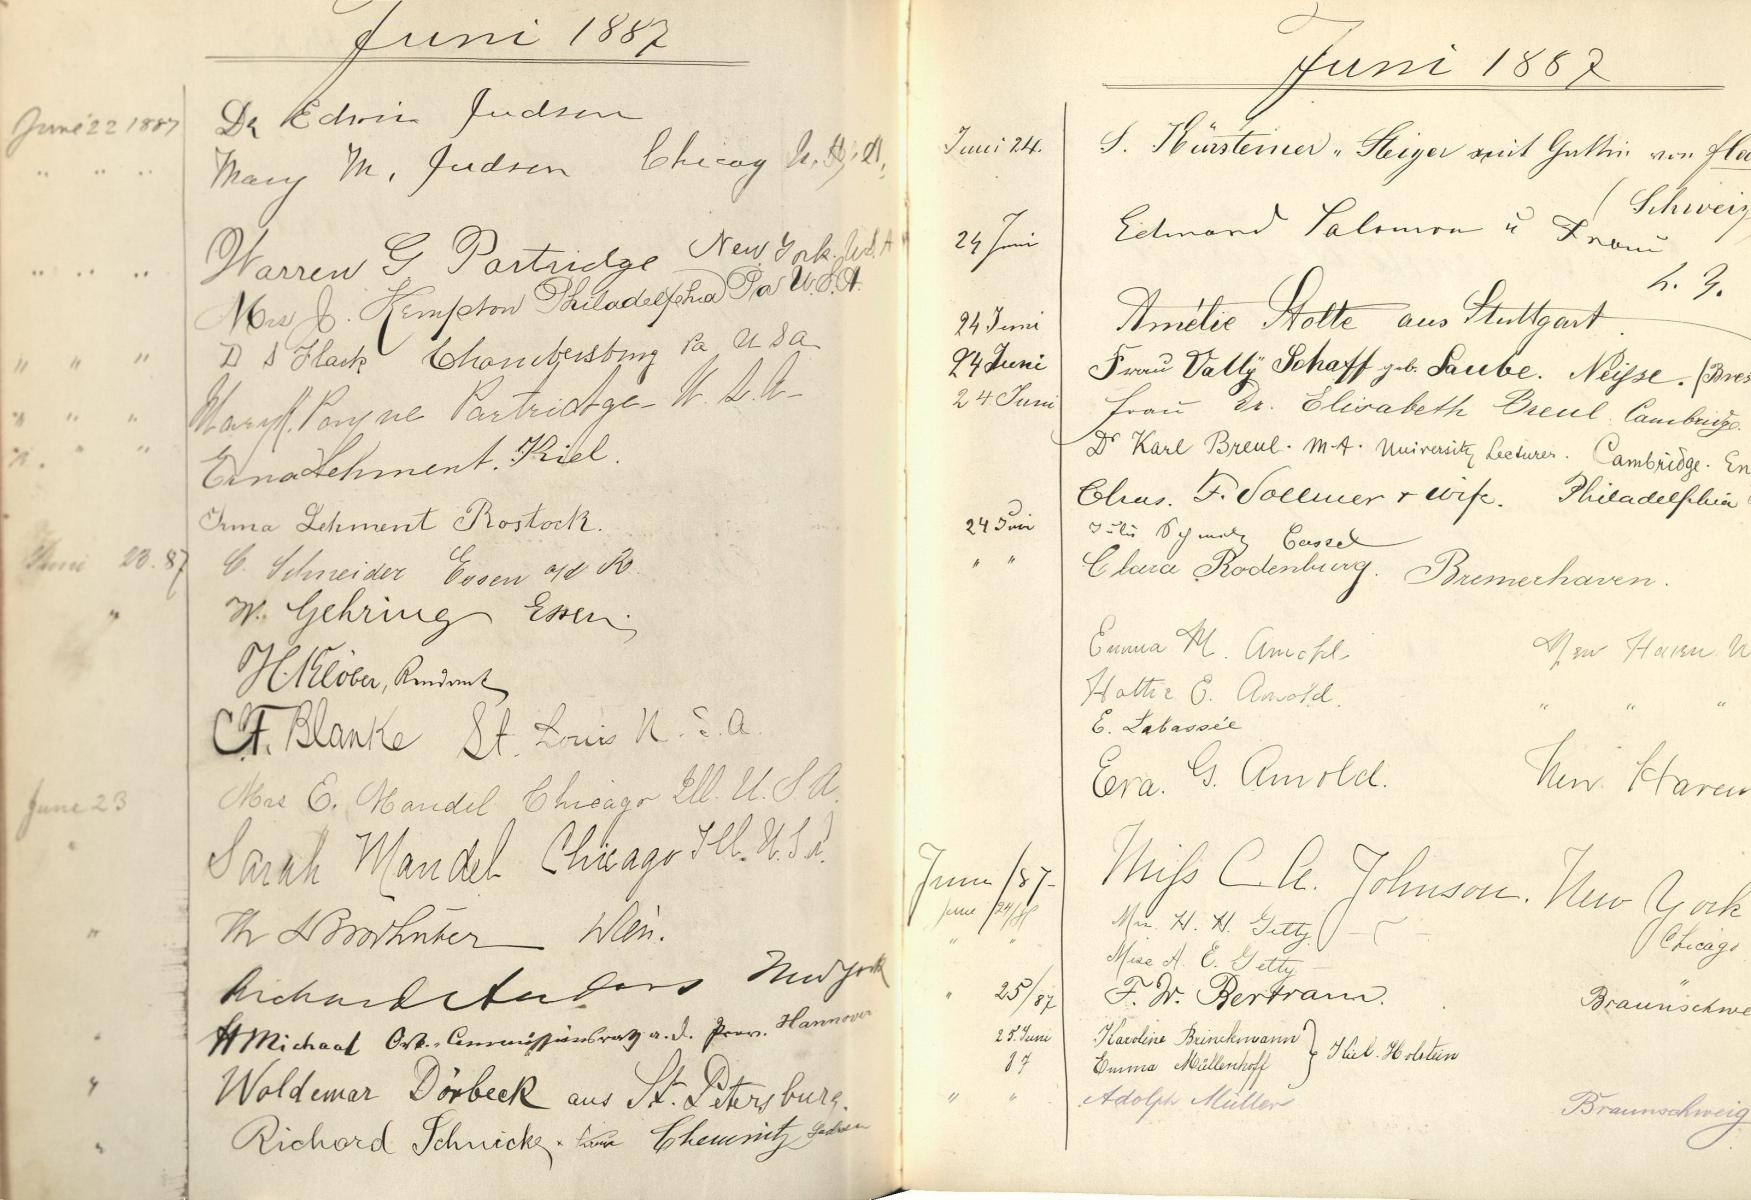 Juni 1887
June 22 1887 Dr Edwin Judson
" " " Mary M. Judson Chicag
" " " Warren G Partridge New York. U.S.A
Mrs J. Kempton Philadelphia Pa U.S.A.
" " " D S Flack Chambersburg Pa U S A
" " " Payne Partridge U. S. A
" " " Erna Lehment. Kiel.
Irma Lehment Rostock.
Juni 23. 87 C. Schneider Essen a/d R.
" W. Gehring Essen.
H. Klöber, Rendant
C.F. Blanke St. Louis U. S. A.
June 23 Mrs E. Mandel Chicago Ill. U. S. A.
" Sarah Mandel Chicago Ill. U. S. A.
" Th Wien.
Richard Anders New York
" H Michael a. d. Prov. Hannover
" Woldemar Dörbeck aus St. Petersburg.
" Richard Schnicke Chemnitz
Juni 1887
Juni 24. S. Kürsteiner - Steiger mit Gattin von
(Schweiz
24 Juni Edward Salomon u Frau
24 Juni Amélie Stolte aus Stuttgart
24 Juni Frau Vally Schaff geb. Laube. Neisse. (Bres
24. Juni Frau Dr. Elisabeth Breul. Cambridge.
Dr Karl Breul. M.A. University Lecturer. Cambridge. En
Chas. F. Vollmer + wife. Philadelphia
24 Juni Cassel
" " Clara Rodenburg. Bremerhaven.
Emma M. New Haven U
Hattie E. Arnold. " " "
E. Labassée
Eva. G. Arnold. New Haven
June /87- Miss C. A. Johnson. New York
June 24/87 Mrs. H. H. Getty Chicago
" " Miss A. E. Getty "
" 25/87 F. W. Bertram. Braunschwe
25. Juni Karoline Brinckmann
87 Emma Müllenhoff } Kiel. Holstein
" " Adolph Müller Braunschweig